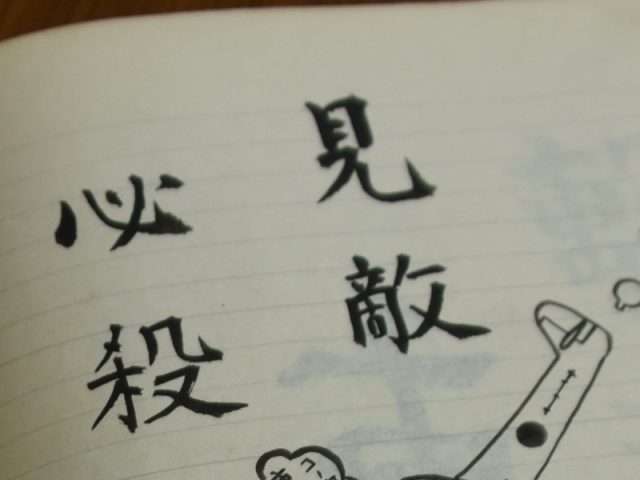 見敵
必殺